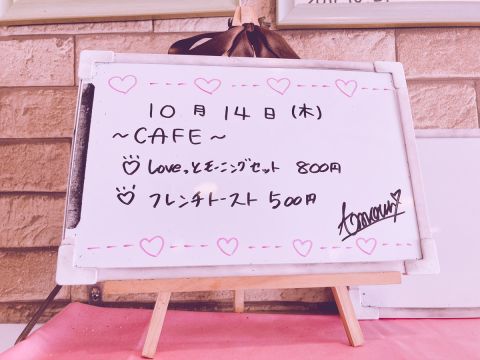 10月14日(木)
～CAFE～
Loveっとモーニングセット 800円
フレンチトースト 500円